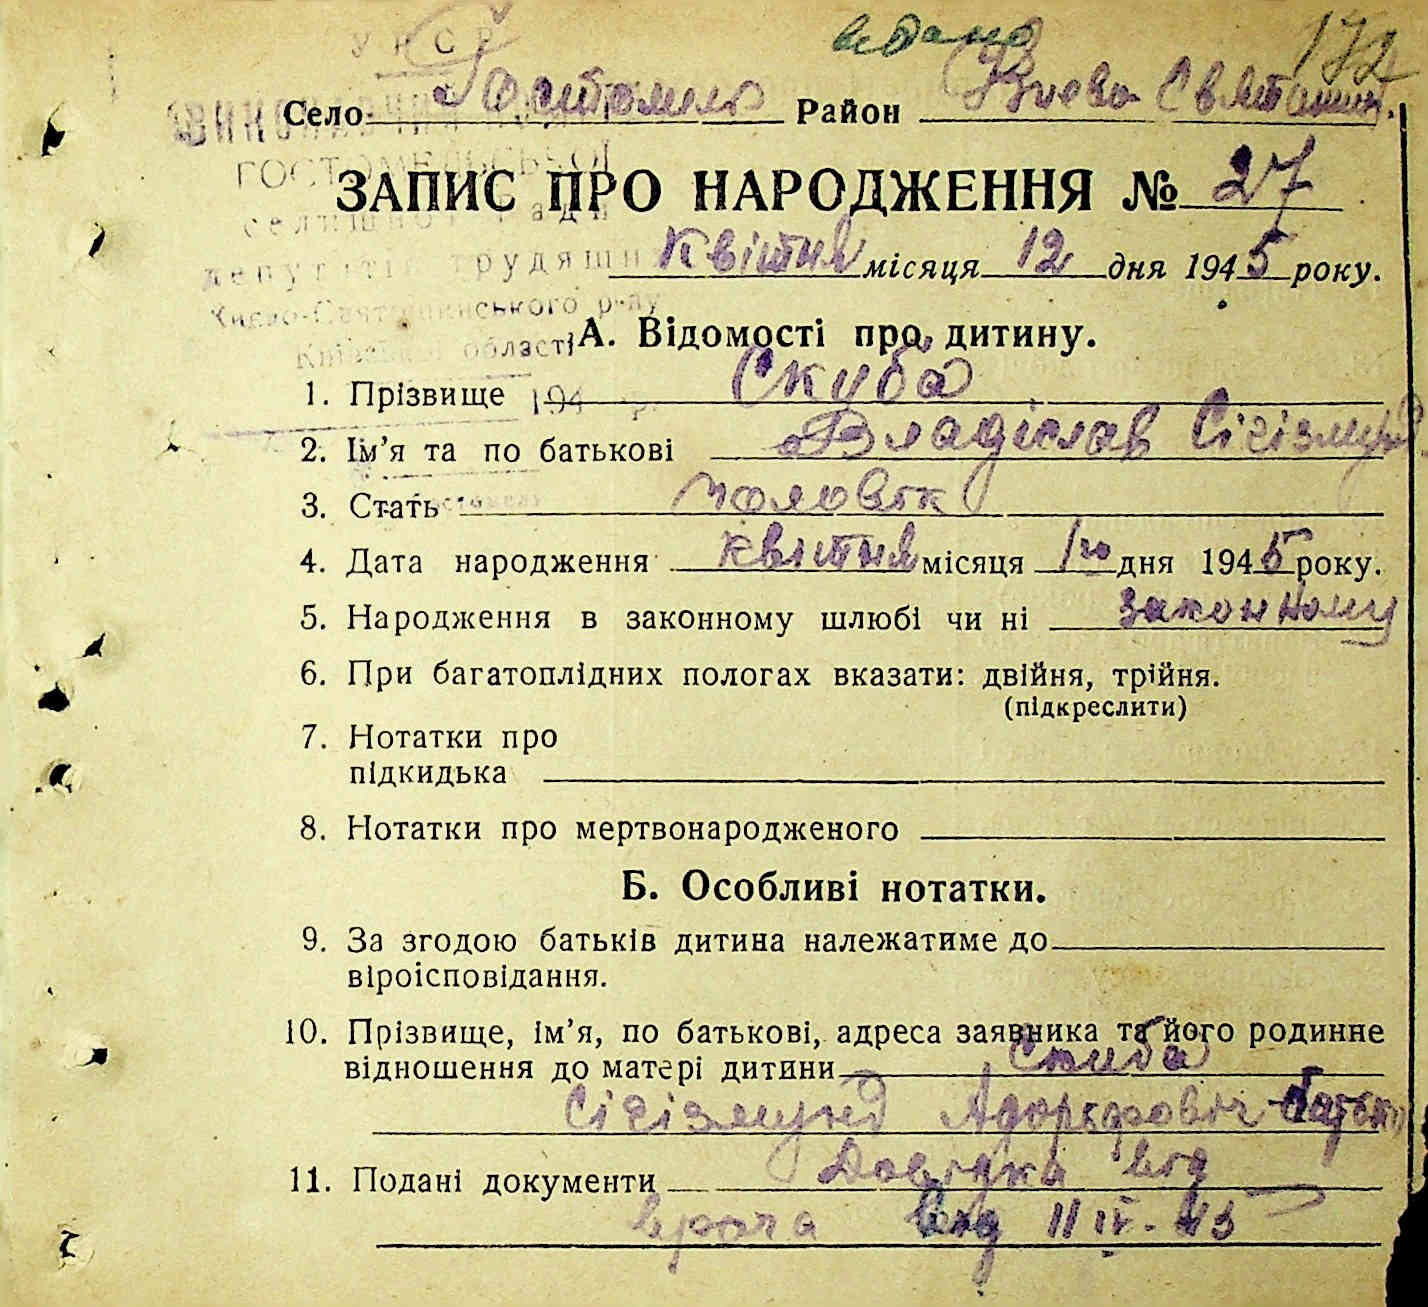 УНСР
видано
172
Село Гостомель Район Києво Святошин.
ВИКОНАВЧИЙ
ГОСТОМЕЛЬСЬКОЇ
селищної Ради
депутатів трудящих
Києво-Святошинського р-ну
Київської області
194 р.
ЗАПИС ПРО НАРОДЖЕННЯ № 27
Квітня місяця 12 дня 1945 року.
А. Відомості про дитину.
1. Прізвище Скуба
2. Ім’я та по батькові Владіслав Сігізмунд
3. Стать чоловік
4. Дата народження квітня місяця 1го дня 1945 року.
5. Народження в законному шлюбі чи ні законному
6. При багатоплідних пологах вказати: двійня, трійня.
(підкреслити)
7. Нотатки про
підкидька
8. Нотатки про мертвонародженого
Б. Особливі нотатки.
9. За згодою батьків дитина належатиме до
віроісповідання.
10. Прізвище, ім’я, по батькові, адреса заявника та його родинне
відношення до матері дитини Скуба
Сігізмунд Адольфовіч батько
11. Подані документи Довідка від
врача від 11 IV-45